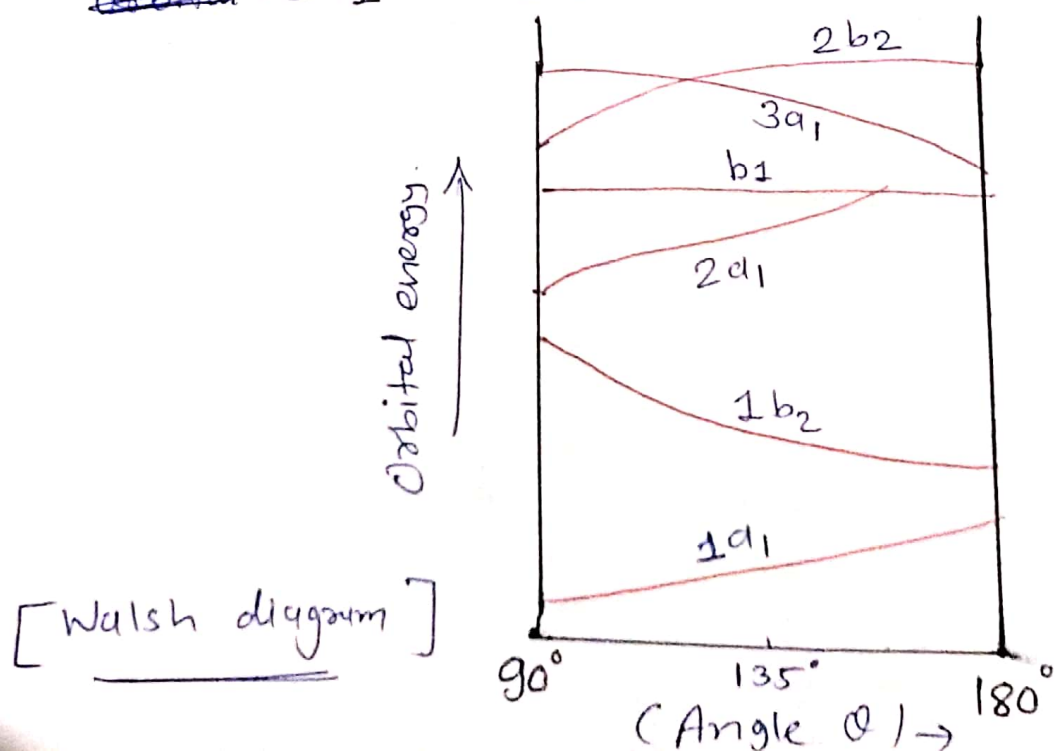 2b2
3a₁
b1
2a₁
1b₂
1a₁
Orbital energy.
[Walsh diagram]
90° 135° 180°
(Angle θ) →